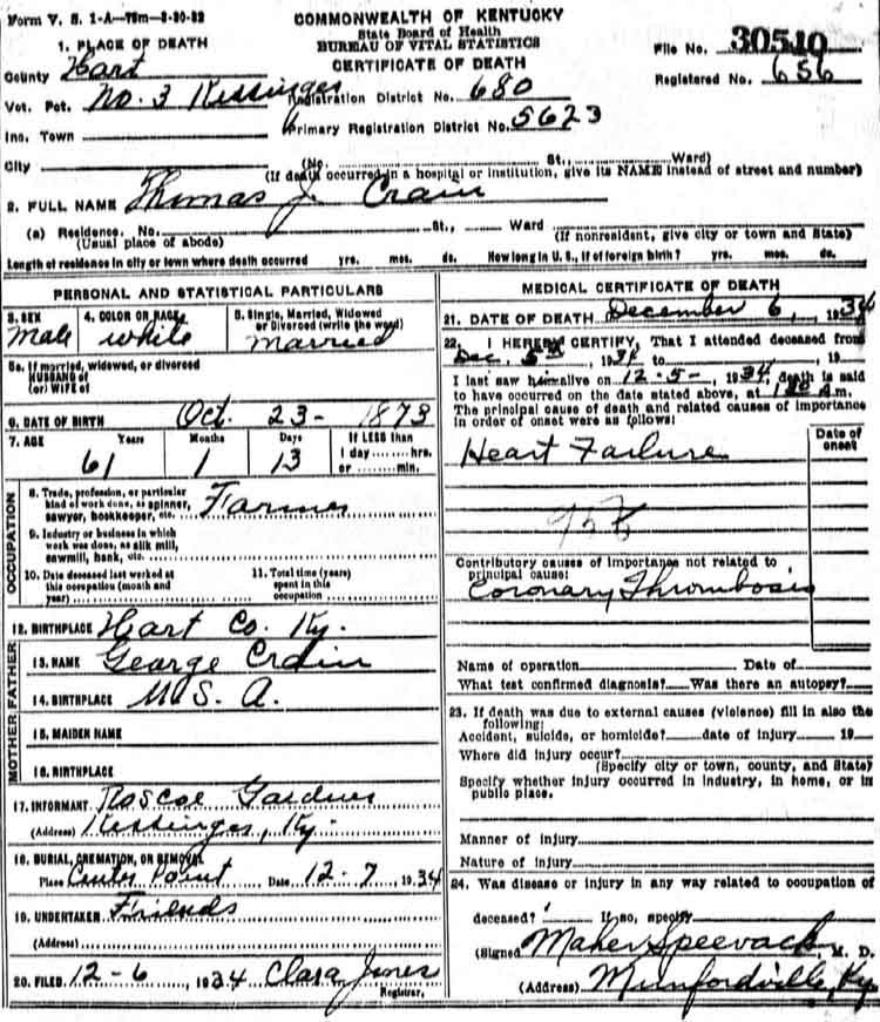 Form V. S. 1-A—75m—8-30-32
COMMONWEALTH OF KENTUCKY
State Board of Health
BUREAU OF VITAL STATISTICS
CERTIFICATE OF DEATH
File No. 30510
Registered No. 656
1. PLACE OF DEATH
County Hart
Vot. Pct. No. 3 Kessinger Registration District No. 680
Inc. Town Primary Registration District No. 5623
City (No. St., Ward)
(If death occurred in a hospital or institution, give its NAME instead of street and number)
2. FULL NAME Thomas J. Crain
(a) Residence. No. St., Ward
(Usual place of abode) (If nonresident, give city or town and State)
Length of residence in city or town where death occurred yrs. mos. ds. How long in U. S., if of foreign birth? yrs. mos. ds.
PERSONAL AND STATISTICAL PARTICULARS
3. SEX 4. COLOR OR RACE 5. Single, Married, Widowed
or Divorced (write the word)
Male white married
5a. If married, widowed, or divorced
HUSBAND of
(or) WIFE of
6. DATE OF BIRTH Oct. 23 - 1873
7. AGE Years Months Days If LESS than
1 day ........ hrs.
or ........ min.
61 1 13
OCCUPATION
8. Trade, profession, or particular
kind of work done, as spinner,
sawyer, bookkeeper, etc. Farmer
9. Industry or business in which
work was done, as silk mill,
sawmill, bank, etc.
10. Date deceased last worked at
this occupation (month and
year)
11. Total time (years)
spent in this
occupation
12. BIRTHPLACE Hart Co. Ky.
FATHER
13. NAME George Crain
14. BIRTHPLACE U. S. A.
MOTHER
15. MAIDEN NAME
16. BIRTHPLACE
17. INFORMANT Roscoe Gardner
(Address) Kessinger, Ky.
18. BURIAL, CREMATION, OR REMOVAL
Place Center Point Date 12-7, 1934
19. UNDERTAKER Friends
(Address)
20. FILED 12-6, 1934 Clara Jones
Registrar.
MEDICAL CERTIFICATE OF DEATH
21. DATE OF DEATH December 6, 1934
22. I HEREBY CERTIFY, That I attended deceased from
Dec. 5th, 1934 to , 19
I last saw him alive on 12-5-, 1934, death is said
to have occurred on the date stated above, at A m.
The principal cause of death and related causes of importance
in order of onset were as follows:
Date of
onset
Heart Failure
Contributory causes of importance not related to
principal cause:
Coronary Thrombosis
Name of operation Date of
What test confirmed diagnosis? Was there an autopsy?
23. If death was due to external causes (violence) fill in also the
following:
Accident, suicide, or homicide? date of injury 19
Where did injury occur?
(Specify city or town, county, and State)
Specify whether injury occurred in industry, in home, or in
public place.
Manner of injury
Nature of injury
24. Was disease or injury in any way related to occupation of
deceased? If so, specify
(Signed Maher Speevack, M. D.
(Address) Munfordville, Ky